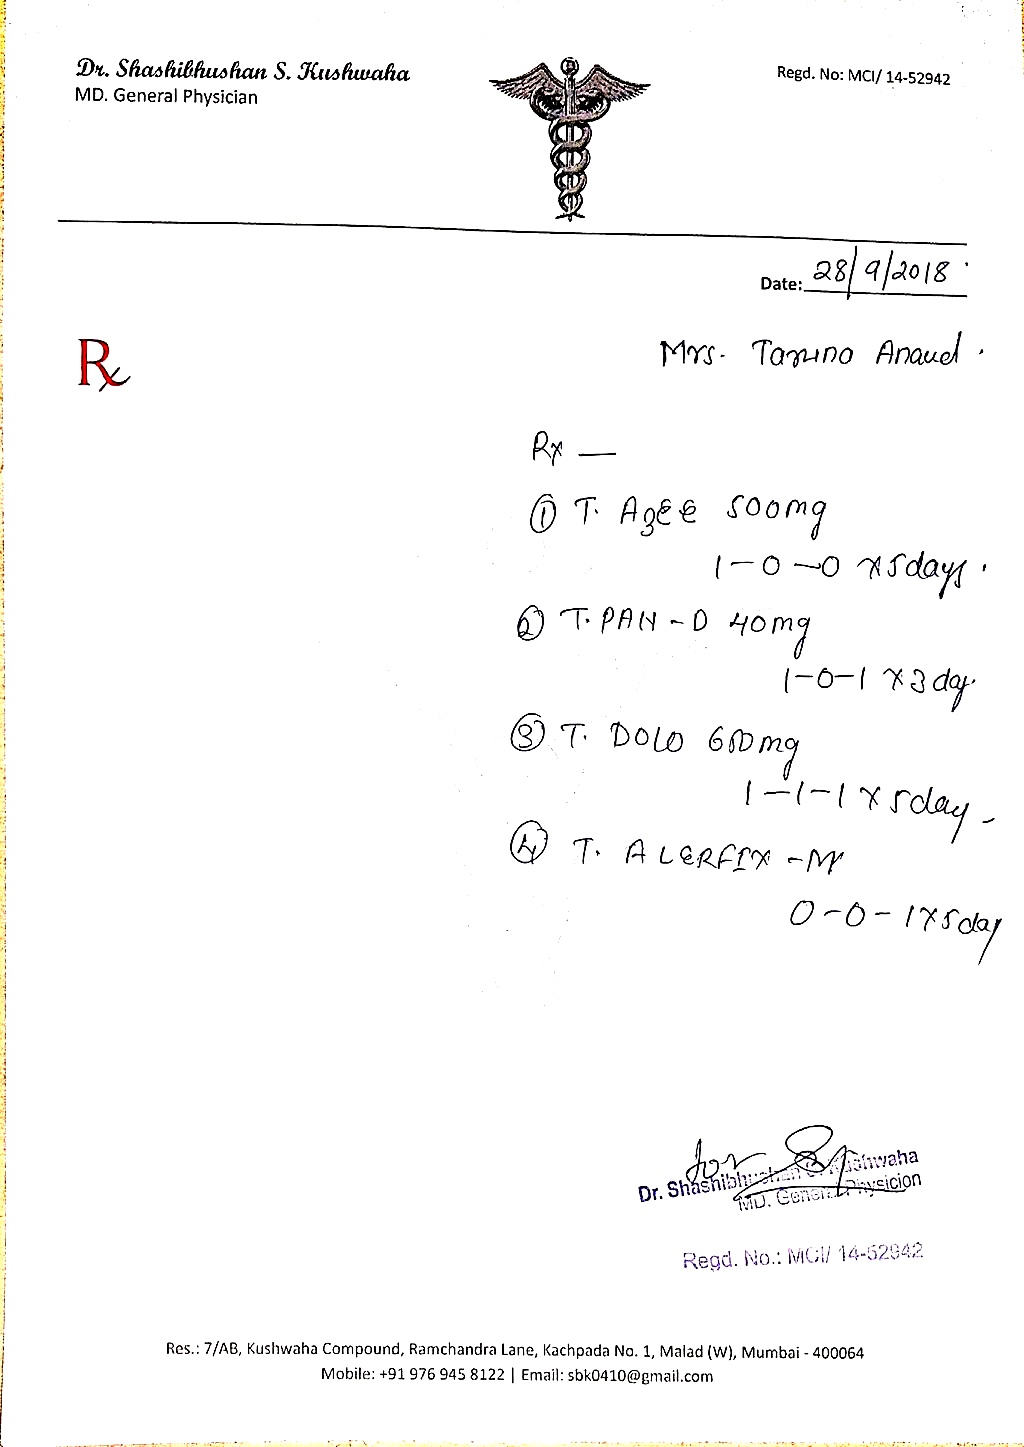 Dr. Shashibhushan S. Kushwaha
MD. General Physician
Regd. No: MCI/ 14-52942
Date: 28/9/2018
Rx
Mrs. Taruno Anand
Rx —
① T. Azee 500mg
1-0-0 x 5days.
② T. PAN-D 40mg
1-0-1 x 3 day.
③ T. DOLO 650mg
1-1-1 x 5day
④ T. ALERFIX-M
0-0-1 x 5day
for
Dr. Shashibhushan S. Kushwaha
MD. General Physicion
Regd. No.: MCI/ 14-52942
Res.: 7/AB, Kushwaha Compound, Ramchandra Lane, Kachpada No. 1, Malad (W), Mumbai - 400064
Mobile: +91 976 945 8122 | Email: sbk0410@gmail.com